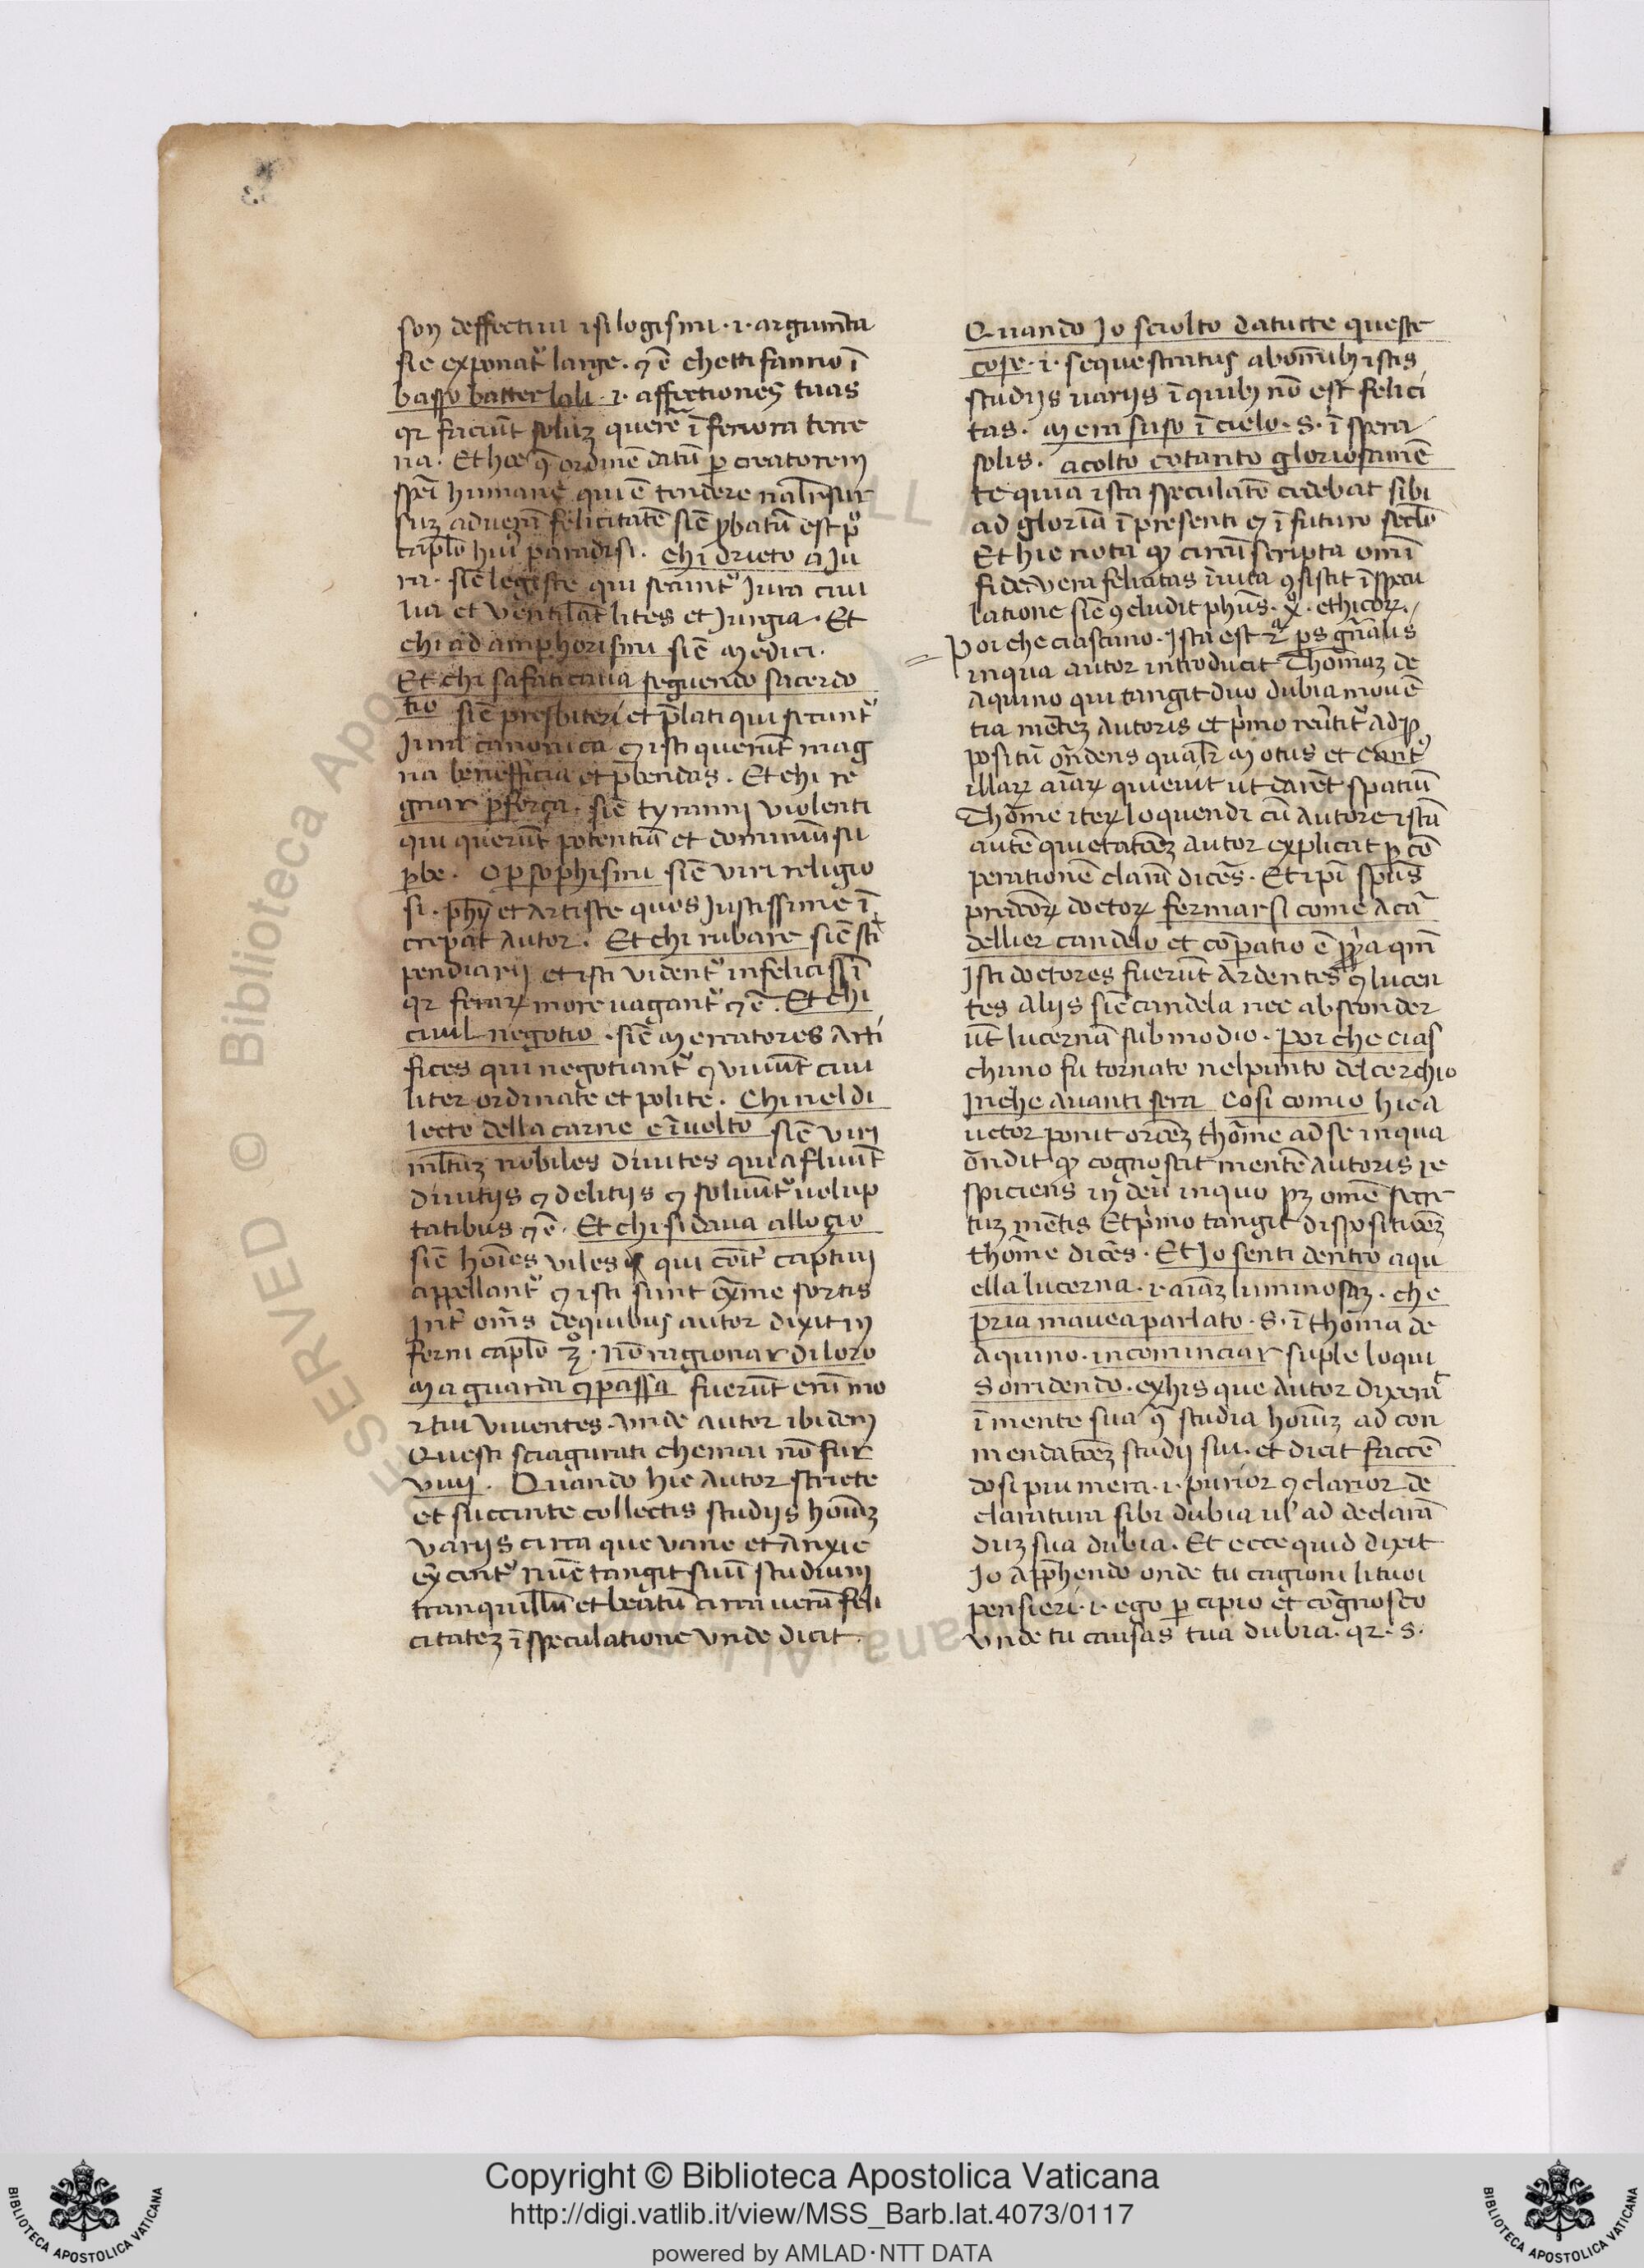 son deffectiui isilogismi · i · argumta
sic exponat᷑ large · ⁊ c̄ chetti fanno ī
basso batter lali · i · affectiones tuas
qr faciūt soluȝ querē ī feriora terre
na · Et hoc ꝯ ordinē datū ꝑ creatorem
spēi humane qui ē tendere nalr̄ sur
suȝ ad uerā felicitatē sic̄ ꝓbatū est pᵒ
caplo huiꝰ paradisi · chi drieto a Ju
ra · sic̄ legiste qui secunt᷑ Jura ciui
lia et ventilāt lites et Jurgia · Et
chi ad amphorismi sic̄ medici ·
Et chi safaticaua seguendo sacerdo
tio sic̄ presbiteri et p̄lati qui secunt᷑
Jura canonica ⁊ isti querūt mag
na benefficia et p̄bendas · Et chi re
gnar ꝑ força · sic̄ tyranni violenti
qui querūt potentiā et dominiū su
ꝑbe · O ꝑ sophismi sic̄ viri religio
si · phȳ et Artiste quos Justissime ī
crepat Autor · Et chi rubare sic̄ sti
pendiarij et isti vident᷑ infelicissi
qr feraꝝ more uagant᷑ ⁊ c̄ · Et chi
ciuil negotio · sic̄ Mercatores Arti
fices qui negotiant᷑ ⁊ viuūt ciui
liter ordinate et polite · Chi nel di
lecto della carne e īuolto sic̄ viri
ml̄tuȝ nobiles diuites qui afluūt
diuitijs ⁊ delitijs ⁊ soluūt᷑ uolup
tatibus ⁊ c̄ · Et chi si daua allo çio
sic̄ hoīes viles qui cōit᷑ captiui
appellant᷑ ⁊ isti sunt exīme sortis
Jnt᷑ oīns de quibus autor dixit in
ferni caplo 3ᵒ · nō ragionar di loro
Ma guarda ⁊ passa fuerūt enī mo
rtui viuentes · vnde autor ibidem
Questi sciagurati che mai nō fur
viui · Quando hic Autor stricte
et succinte collectis studijs hoīuȝ
varijs circa que vane et Anxie
ex̄cent᷑ nūc tangit suū studium
tranquillū et beatū circa uerā feli
citateȝ ī speculatione vnde dicit ·
Quando Jo sciolto da tutte queste
cose · i · sequestratus ab oīnibȝ istis
studijs uarijs ī quibȝ nō est felici
tas · Mera suso ī cielo · s · ī spera
solis · acolto cotanto gloriosamē
te quia ista speculatē cedebat sibi
ad gloriā ī presenti ⁊ ī futuro seclo
Et hic nota ꝙ circūscripta omī
fide vera felicitas ī uita ꝯsistit ī specu
latione sic̄ ꝯcludit phūs · xᵒ · ethicoꝝ ·
Poi che ciascuno · Ista est 2ᵃ ps gn̄alis
in qua autor introducit Thomaȝ de
Aquino qui tangit duo dubia mouē
tia menteȝ Autoris et p̄mo reūtit᷑ ad ꝓ
positū on̄dens qualr̄ motus et cant᷑
illaꝝ aīaꝝ quieuit ut darēt spatiū
Thome iteꝝ loquendi cū Autore istā
autē quietatōeȝ autor explicat ꝑ cō
perationē clarā dicēs · Et ipī spūs
predcōꝝ doctoꝝ fermarsi come a ca
dellier candelo et cōpatio ē ꝓpria qm̄
Isti doctores fuerūt Ardentes ⁊ lucen
tes Alijs sic̄ candela nec absconder
ūt lucernā sub modio · Poi che cias
chuno fu tornate nel punto del cerchio
In che auanti sera Cosi comio hic a
uctor ponit orōeȝ thome ad se in qua
on̄dit ꝙ cognoscat mentē Autoris re
spiciens in deū in quo pȝ omē secre
tuȝ mētis Et p̄mo tangit dispositōeȝ
thome dicēs · Et Jo senti dentro a qu
ella lucerna · i · aīaȝ luminosaȝ · che
pria mauea parlato · s · ī thoma de
Aquino · incominciar suple loqui
Sorridendo · ex his que Autor dixerat
ī mente sua ꝯ studia hoīuȝ ad con
mendatōeȝ studij sui · et dicit faccē
dosi piu mera · i · purior ⁊ clarior de
claratura sibi dubia ul᷑ ad declarā
duȝ sua dubia · Et ecce quid dixit
Jo apprhendo onde tu cagioni li tuoi
pensieri · i · ego ꝑcipio et cōgnosco
vnde tu causas tua dubia · qr · s ·
Copyright © Biblioteca Apostolica Vaticana
http://digi.vatlib.it/view/MSS_Barb.lat.4073/0117
powered by AMLAD·NTT DATA